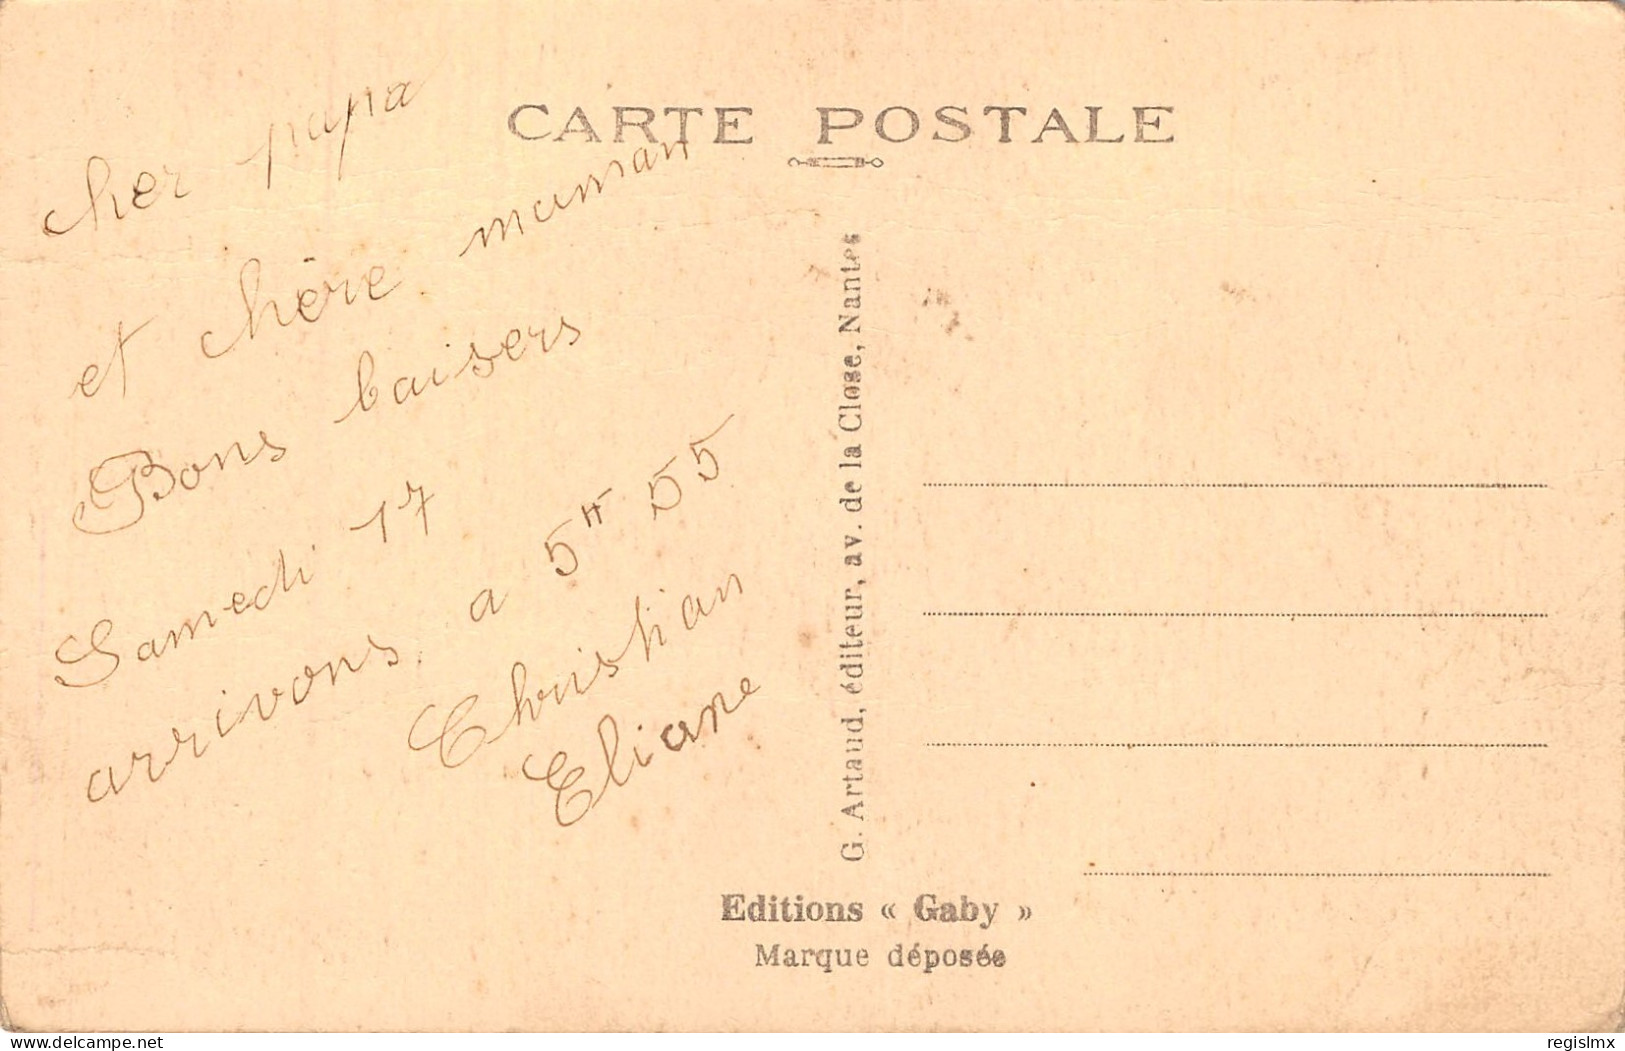 CARTE POSTALE
cher papa
et chère maman
Bons baisers
Samedi 17
arrivons a 5H 55
Christian
Eliane
G. Artaud, éditeur, av. de la Close, Nantes
Editions « Gaby »
Marque déposée
www.delcampe.net
regislmx